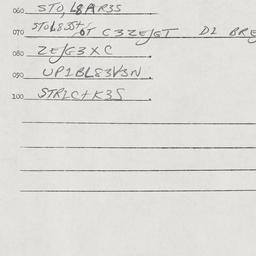 060 STO, L8AR3S
070 C3ZEJGT D1 BRE
080 ZEJG3XC
090 UP1BL83V3N
100 STR1C+K3S